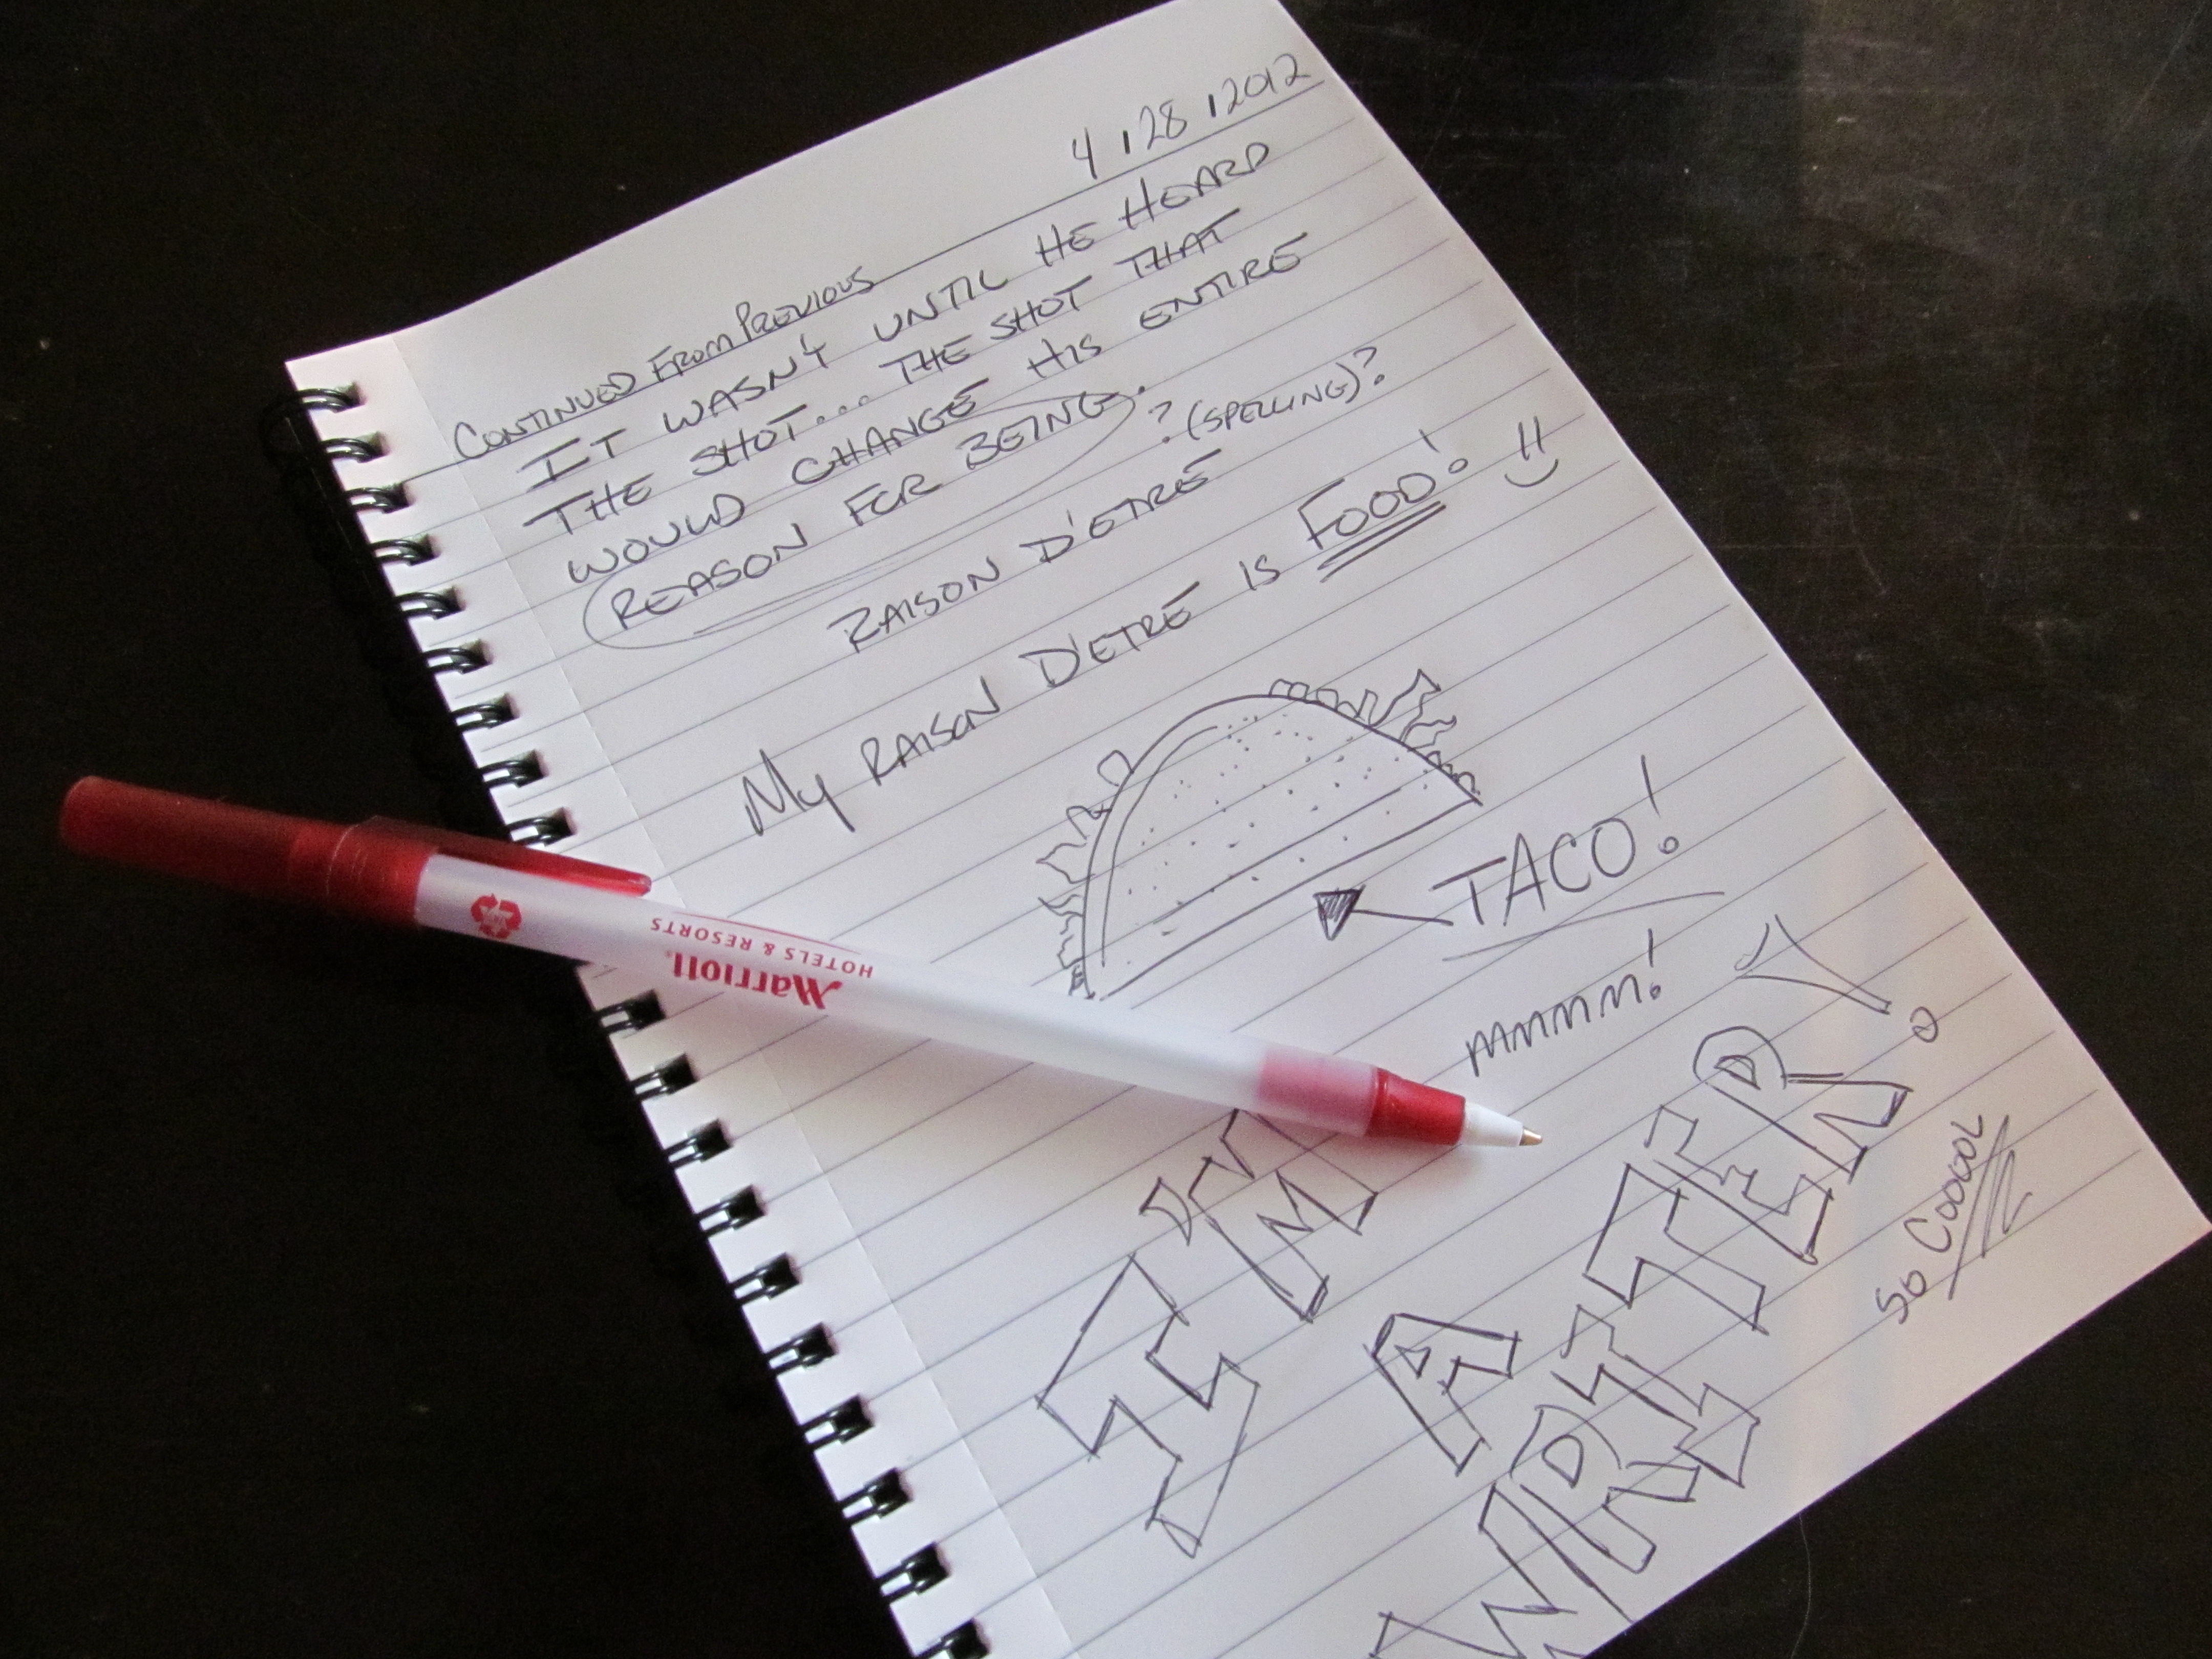 4, 28, 2012
CONTINUED FROM PREVIOUS
IT WASN'T UNTIL HE HEARD
THE SHOT... THE SHOT THAT
WOULD CHANGE HIS ENTIRE
REASON FOR BEING.
RAISON D'ETRE ?(SPELLING)?
MY RAISON D'ETRE IS FOOD!
TACO!
MMMM!
I'M
A
WRITER!
SO COOOL
Marriott
HOTELS & RESORTS